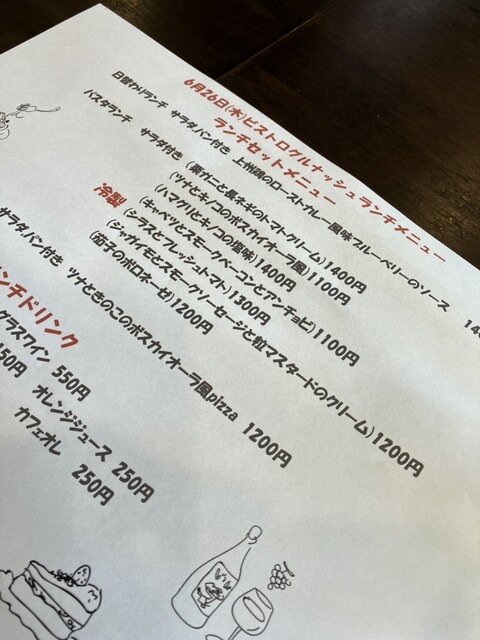 6月26日(木)ビストログルナッシュランチメニュー
ランチセットメニュー
日替わりランチ サラダ,パン付き 上州鶏のローストカレー風味ブルーベリーのソース 140
パスタランチ サラダ付き (紫ガニと長ネギのトマトクリーム)1400円
(ツナとキノコのボスカイオーラ風)1100円
(ハマグリとキノコの塩味)1400円
(キャベツとスモークベーコンとアンチョビ)1100円
冷製 (シラスとフレッシュトマト)1300円
(ジャガイモとスモークソーセージと粒マスタードのクリーム)1200円
(茄子のボロネーゼ)1200円
サラダ,パン付き ツナときのこのボスカイオーラ風pizza 1200円
ンチドリンク
グラスワイン 550円
50円 オレンジジュース 250円
カフェオレ 250円